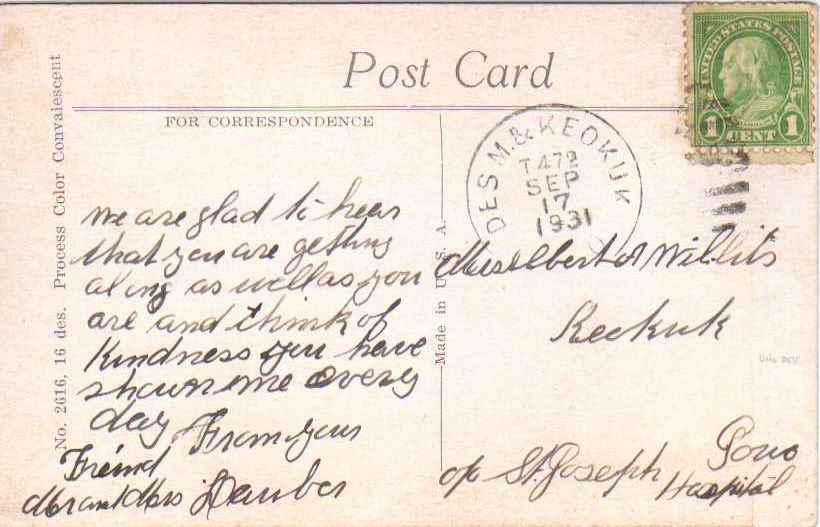 Post Card
FOR CORRESPONDENCE
No. 2616, 16 des. Process Color Convalescent
Made in U. S. A.
UNITED STATES POSTAGE
1 CENT 1
DES M. & KEOKUK
T472
SEP
17
1931
We are glad to hear
that you are getting
along as well as you
are and think of
Kindness you have
shown me every
day From your
Freind
Mr and Mrs Dauber
Albert A Willits
Keokuk
Iowa
c/o St. Joseph Hospital